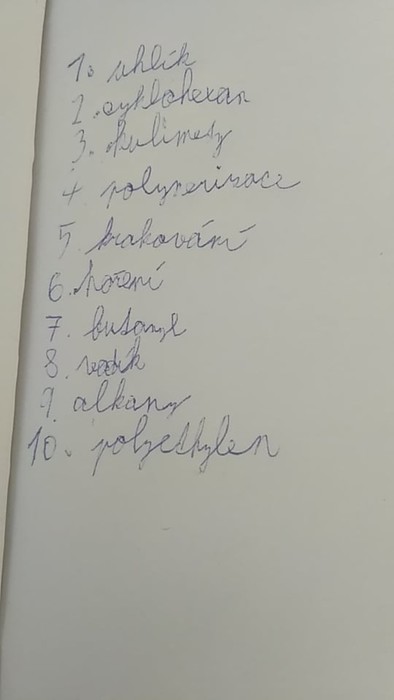 1. uhlík
2. cyklohexan
3.
4. polymerizace
5. krakování
6. hoření
7. butanyl
8. vodík
9. alkany
10. polyethylen